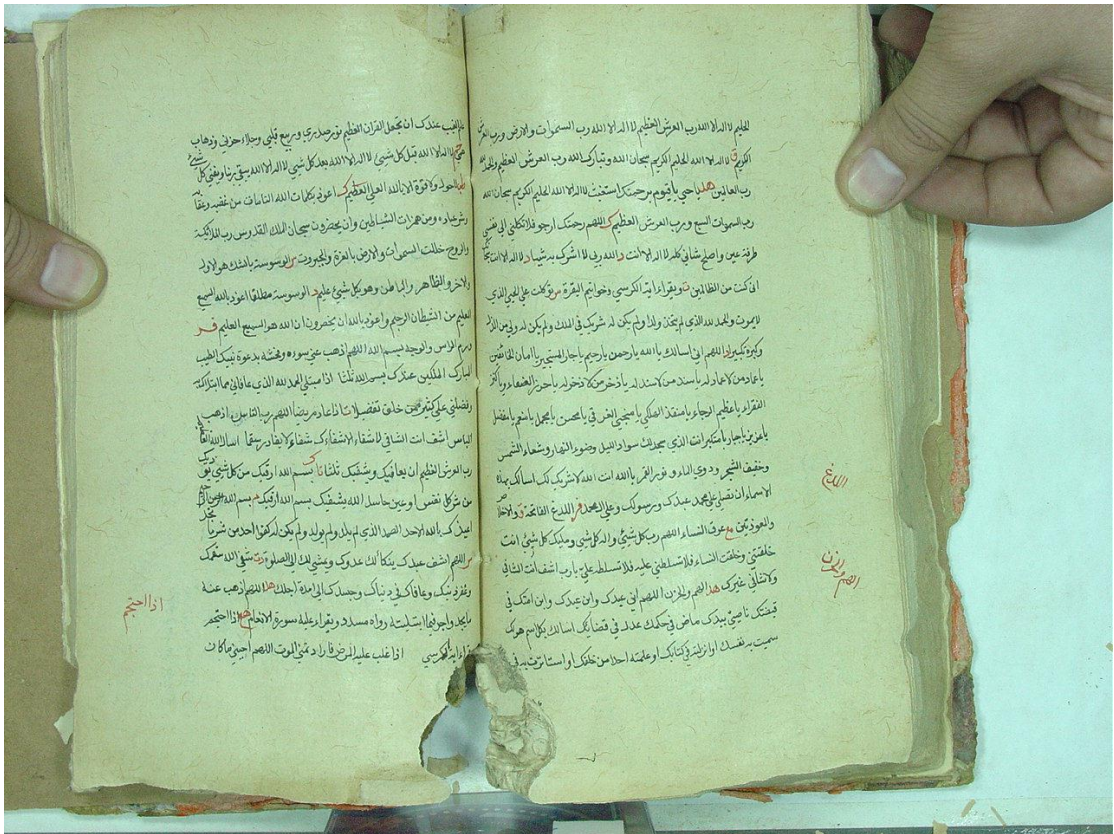 الحليم لا اله الا الله رب العرش العظيم لا اله الا الله رب السموات والارض ورب العرش
الكريم ق لا اله الا الله الحليم الكريم سبحان الله وتبارك الله رب العرش العظيم والحمد لله
رب العالمين يا حي يا قيوم برحمتك استغيث لا اله الا الله الحليم الكريم سبحان الله
رب السموات السبع ورب العرش العظيم اللهم رحمتك ارجو فلا تكلني الى نفسي
طرفة عين واصلح شاني كله لا اله الا انت الله ربي لا اشرك به شيا لا اله الا انت
اني كنت من الظالمين ويقراء اية الكرسي وخواتيم البقرة توكلت على الحي الذي
لا يموت والحمد لله الذي لم يتخذ ولدا ولم يكن له شريك في الملك ولم يكن له ولي من الذل
وكبره تكبيرا اللهم اني اسالك يا الله يا رحمن يا رحيم يا جار المستجيرين يا امان الخائفين
يا عماد من لا عماد له يا سند من لا سند له يا ذخر من لا ذخر له يا حرز الضعفاء ويا كنز
الفقراء يا عظيم الرجاء يا منقذ الهلكى يا منجي الغرقى يا محسن يا مجمل يا منعم يا مفضل
يا عزيز يا جبار يا متكبر انت الذي سجد لك سواد الليل وضوء النهار وشعاع الشمس
وحفيف الشجر ودوي الماء ونور القمر يا الله انت الله لا شريك لك اسالك بهذه
الاسماء ان تصلي على محمد عبدك ورسولك وعلى ال محمد اللدغ الفاتحة والاخلاص
والمعوذتين عرق النساء اللهم رب كل شيئ واله كل شيئ ومليك كل شيئ انت
خلقتني وخلقت النساء فلا تسلطني عليه فلا تسلطه علي يا رب اشف انت الشافي
ولا شافي غيرك الهم والحزن اللهم اني عبدك وابن عبدك وابن امتك في
قبضتك ناصيتي بيدك ماض في حكمك عدل في قضائك اسالك بكل اسم هو لك
سميت به نفسك او انزلته في كتابك او علمته احدا من خلقك او استاثرت به في
اللدغ
الهم والحزن
علم الغيب عندك ان تجعل القران العظيم نور صدري وربيع قلبي وجلاء حزني وذهاب
لا اله الا الله قبل كل شيئ لا اله الا الله بعد كل شيئ لا اله الا الله يبقى ربنا ويفنى كل شيئ
لا حول ولا قوة الا بالله العلي العظيم اعوذ بكلمات الله التامات من غضبه وعقابه
وشر عباده ومن همزات الشياطين وان يحضرون سبحان الملك القدوس رب الملائكة
والروح خللت السموات والارض بالعزة والجبروت الوسوسة بالشك هو الاول
والاخر والظاهر والباطن وهو بكل شيئ عليم الوسوسة مطلقا اعوذ بالله السميع
العليم من الشيطان الرجيم واعوذ بالله ان يحضرون ان الله هو السميع العليم
ورم الراس والوجه بسم الله اللهم اذهب عني سوءه وفحشه بدعوة نبيك الطيب
المبارك المكين عندك بسم الله ثلثا اذا مبتلي الحمد لله الذي عافاني مما ابتلاك به
وفضلني على كثير ممن خلق تفضيلا اذا عاد مريضا اللهم رب الناس اذهب
الباس اشف انت الشافي لا شفاء الا شفاءك شفاء لا يغادر سقما اسال الله العظيم
رب العرش العظيم ان يعافيك ويشفيك ثلثا بسم الله ارقيك من كل شيئ يؤذيك
من شر كل نفس او عين حاسد الله يشفيك بسم الله ارقيك بسم الله
اعيذك بالله الاحد الصمد الذي لم يلد ولم يولد ولم يكن له كفوا احد من شر ما تجد
اللهم اشف عبدك ينكا لك عدوك ويمشي لك الى الصلوة شفى الله سقمك
وغفر ذنبك وعافاك في دينك وجسدك الى مدة اجلك اللهم اذهب عنه
ما يجد واجره فيما ابتليته رواه مسدد ويقراء عليه سورة الانعام اذا احتجم
قراء اية الكرسي اذا غلب عليه المرض فاراد تمني الموت اللهم احيني ما كان
اذا احتجم